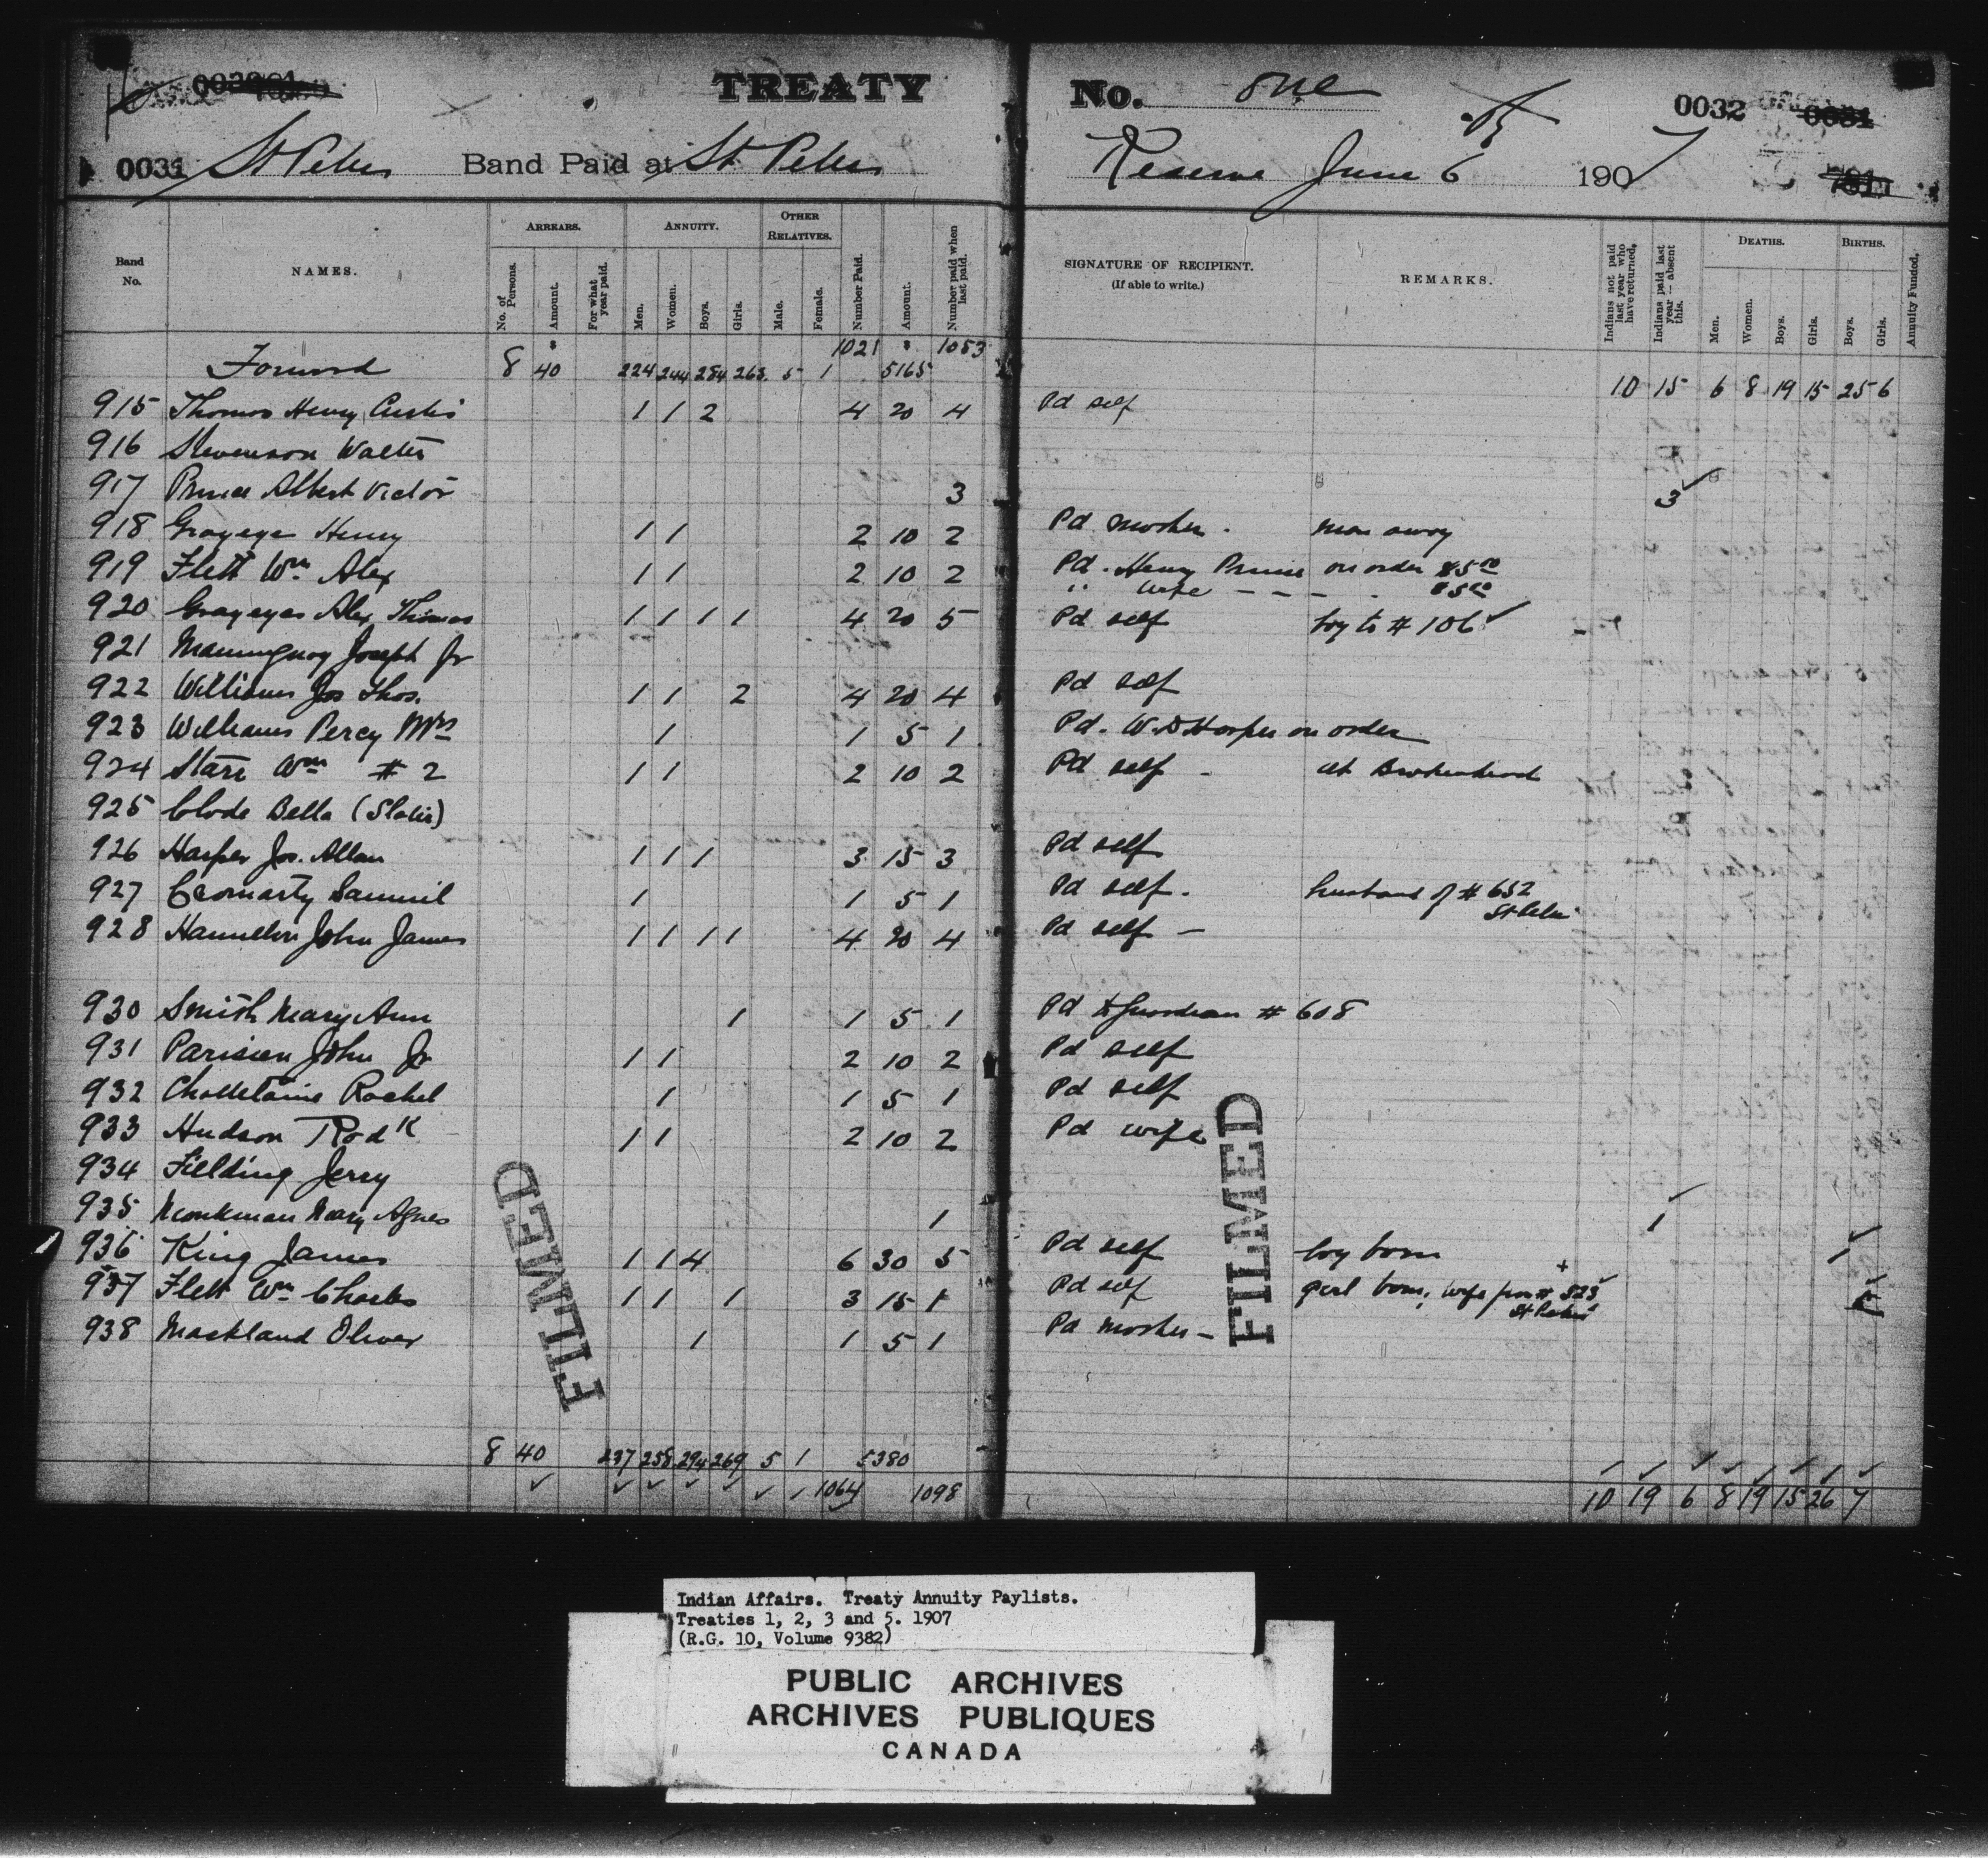 TREATY No. one
0031 St Peters Band Paid at St Peters Reserve June 6 1907
0032
Band No.
NAMES.
ARREARS.
No. of Persons.
Amount.
For what year paid.
ANNUITY.
Men.
Women.
Boys.
Girls.
OTHER RELATIVES.
Male.
Female.
Number Paid.
Amount.
Number paid when last paid.
SIGNATURE OF RECIPIENT.
(If able to write.)
REMARKS.
Indians not paid last year who have returned.
Indians paid last year — absent this.
DEATHS.
Men.
Women.
Boys.
Girls.
BIRTHS.
Boys.
Girls.
Annuity Funded.
Forward 8 40 224 244 284 263 5 1 1021 5165 1053 10 15 6 8 19 15 25 6
915 Thomas Henry Curtis 1 1 2 4 20 4 Pd self
916 Stevenson Walter
917 Prince Albert Victor 3 3
918 Grayeye Henry 1 1 2 10 2 Pd mother. man away
919 Flett Wm Alex 1 1 2 10 2 Pd. Henry Prince on order $5.00
" wife - - - - $5.00
920 Grayeyes Alex Thomas 1 1 1 1 4 20 5 Pd self boy to # 106
921 Joseph Jr
922 Williams Jos Thos. 1 1 2 4 20 4 Pd self
923 Williams Percy Mrs 1 1 5 1 Pd. W. D Harper on order
924 Starr Wm # 2 1 1 2 10 2 Pd self - at Brokenhead
925 Clode Bella (Slater)
926 Harper Jos. Allan 1 1 1 3 15 3 Pd self
927 Cromarty Samuel 1 1 5 1 Pd self. husband of # 652
St Peters
928 Hamelton John James 1 1 1 1 4 20 4 Pd self -
930 Smith Mary Ann 1 1 5 1 Pd to guardian # 608
931 Parisien John Jr 1 1 2 10 2 Pd self
932 Rachel 1 1 5 1 Pd self
933 Hudson Rodk 1 1 2 10 2 Pd wife
934 Fielding Jerry
935 Monkman Mary Agnes 1 1
936 King James 1 1 4 6 30 5 Pd self boy born 1
937 Flett Wm Charles 1 1 1 3 15 1 Pd self girl born, wife from # 523
St Peters
938 Mackland Oliver 1 1 5 1 Pd mother -
8 40 237 258 294 269 5 1 5380
1064 1098 10 19 6 8 19 15 26 7
FILMED
FILMED
Indian Affairs. Treaty Annuity Paylists.
Treaties 1, 2, 3 and 5. 1907
(R.G. 10, Volume 9382)
PUBLIC ARCHIVES
ARCHIVES PUBLIQUES
CANADA